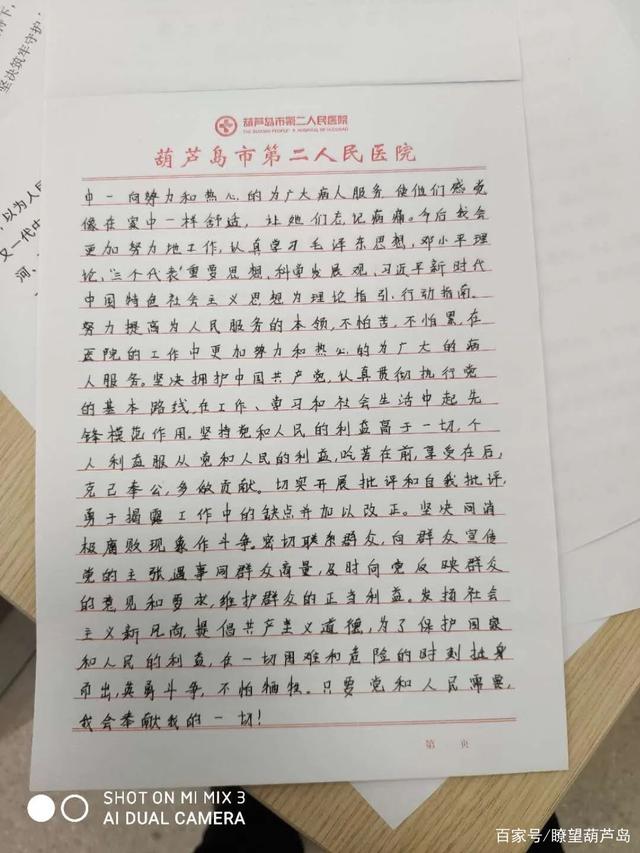 坚决筑牢守护
以为人民
又一代中
河、
葫芦岛市第二人民医院
葫芦岛市第二人民医院
中一向努力和热心的为广大病人服务 使他们感觉
像在家中一样舒适, 让她们忘记病痛。今后我会
更加努力地工作,认真学习毛泽东思想,邓小平理
论,"三个代表"重要思想、科学发展观、习近平新时代
中国特色社会主义思想为理论指引,行动指南。
努力提高为人民服务的本领,不怕苦,不怕累,在
医院的工作中更加努力和热心的为广大的病
人服务。坚决拥护中国共产党,认真贯彻执行党
的基本路线,在工作、学习和社会生活中起先
锋模范作用。坚持党和人民的利益高于一切,个
人利益服从党和人民的利益,吃苦在前,享受在后,
克己奉公,多做贡献。切实开展批评和自我批评,
勇于揭露工作中的缺点并加以改正。坚决同消
极腐败现象作斗争。密切联系群众,向群众宣传
党的主张遇事同群众商量,及时向党反映群众
的意见和要求,维护群众的正当利益。发扬社会
主义新风尚,提倡共产主义道德,为了保护国家
和人民的利益,在一切困难和危险的时刻挺身
而出,英勇斗争,不怕牺牲。只要党和人民需要,
我会奉献我的一切!
第 页
SHOT ON MI MIX 3
AI DUAL CAMERA
百家号/瞭望葫芦岛